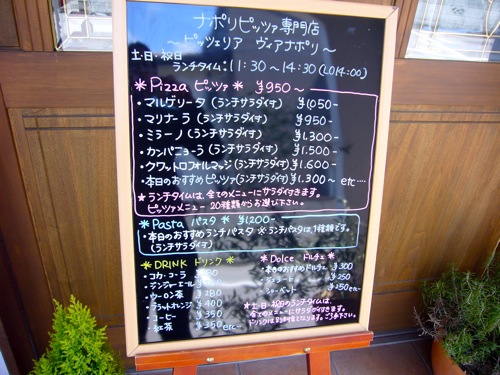 ナポリピッツァ専門店
～ピッツェリア ヴィアナポリ～
土・日・祝日
ランチタイム：11:30～14:30(LO14:00)
＊Pizza ピッツァ＊ ¥950～
・マルゲリータ(ランチサラダ付) ¥1050-
・マリナーラ(ランチサラダ付) ¥950-
・ミラーノ(ランチサラダ付) ¥1.300-
・カンパニョーラ(ランチサラダ付) ¥1.500-
・クワットロフォルマッジ(ランチサラダ付) ¥1.600-
・本日のおすすめピッツァ(ランチサラダ付) ¥1.300～ etc…
＊ランチタイムは、全てのメニューにサラダ付きます。
ピッツァメニュー20種類からお選び下さい。
＊Pasta パスタ＊ ¥1200-
・本日のおすすめランチパスタ ※ランチパスタは、1種類です。
(ランチサラダ付)
＊DRINK ドリンク＊
・コカ・コーラ
・ジンジャーエール
・ウーロン茶 ¥280
・ブラッドオレンジ ¥400
・コーヒー ¥350
・紅茶 ¥350 etc-
＊Dolce ドルチェ＊
・本日のおすすめドルチェ ¥300
・ジェラート ¥250
・シャーベット ¥250 etc-
＊土・日・祝のランチタイムは、
全てのメニューにサラダが付きます。
ドリンクは別料金となります。ご了承下さい。